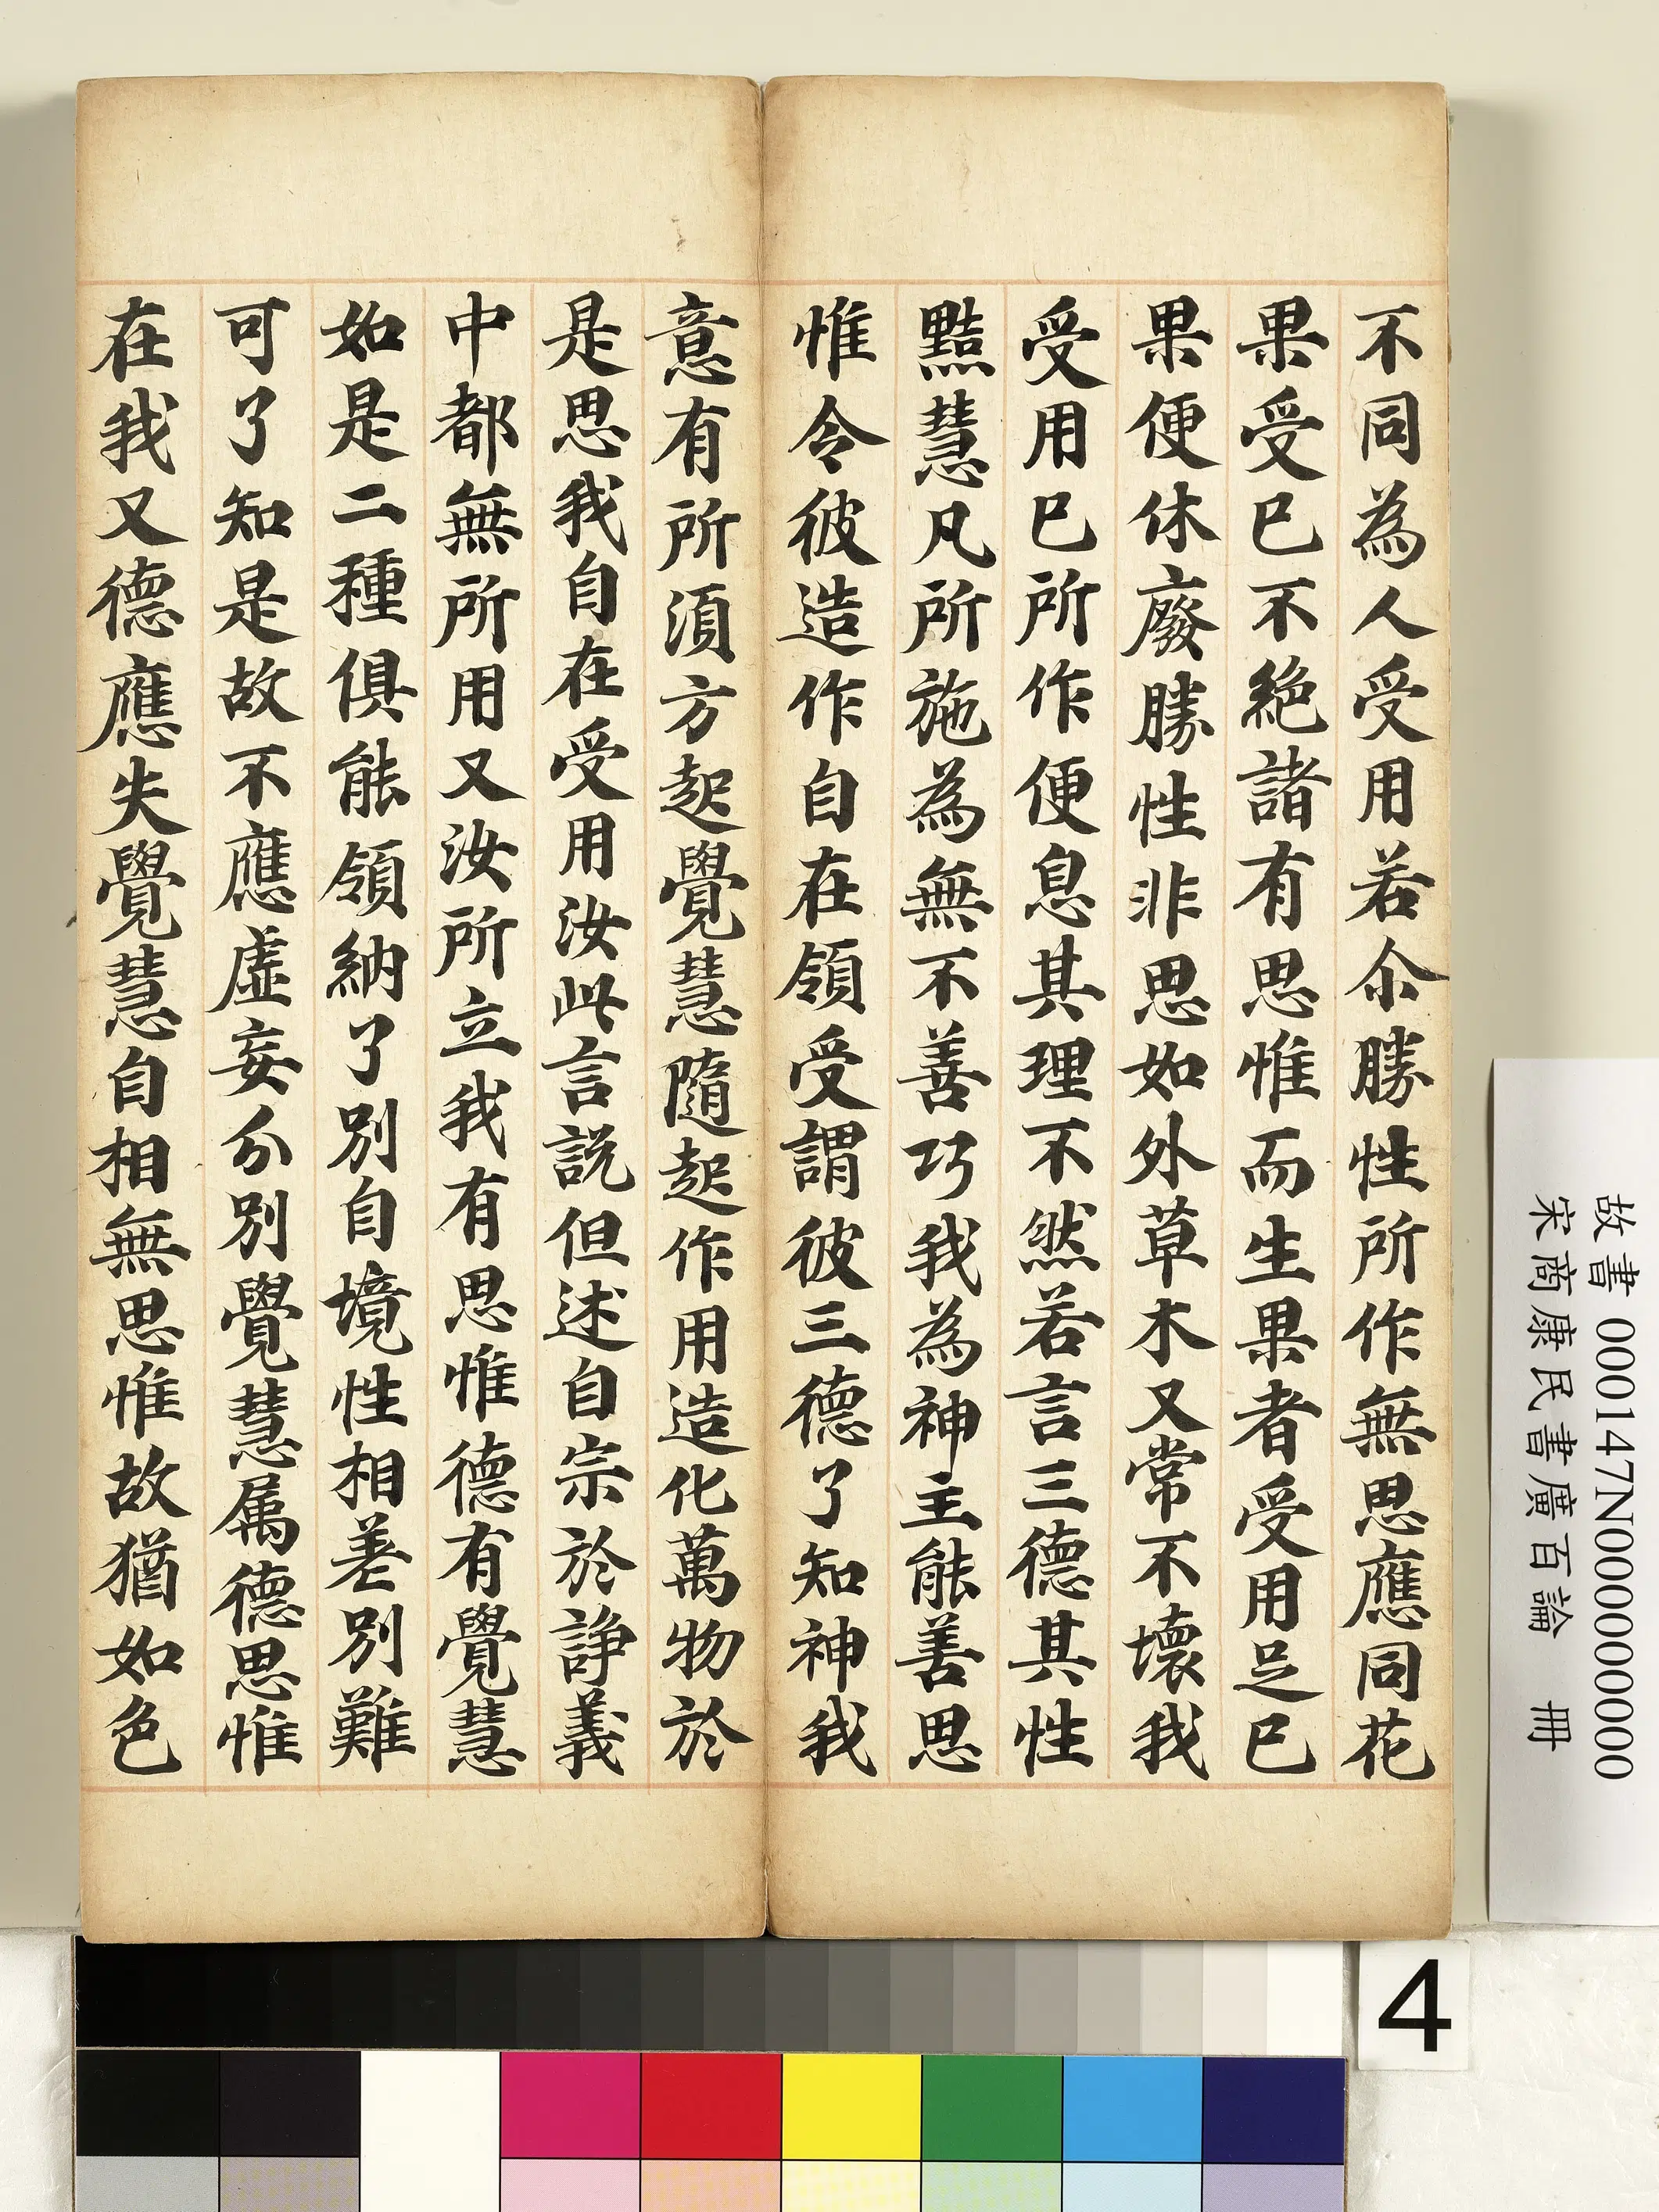 不同為人受用若尒勝性所作無思應同花
果受已不絶諸有思惟而生果者受用足已
果便休廢勝性非思如外草木又常不壞我
受用已所作便息其理不然若言三德其性
黠慧凡所施為無不善巧我為神主能善思
惟令彼造作自在領受謂彼三德了知神我
意有所須方起覺慧隨起作用造化萬物於
是思我自在受用汝此言説但述自宗於諍義
中都無所用又汝所立我有思惟德有覺慧
如是二種俱能領納了別自境性相差別難
可了知是故不應虛妄分別覺慧属德思惟
在我又德應失覺慧自相無思惟故猶如色
故書 000147N000000000
宋商康民書廣百論 冊
4